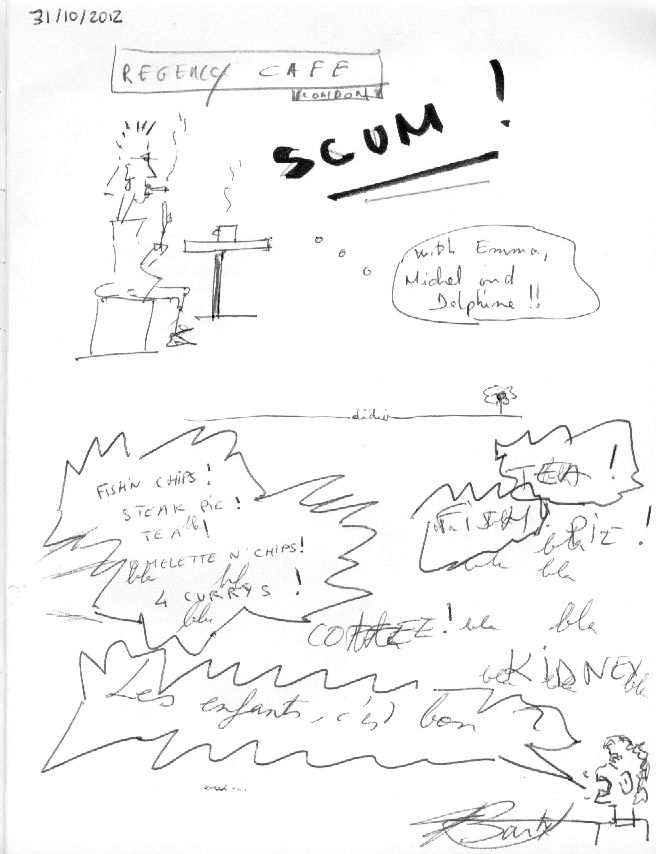 31/10/2012
REGENCY CAFE
LONDON
SCUM !
with Emma,
Michel and
Delphine !!
FISH'N CHIPS !
STEAK PIE !
TEA !
bla
OMELETTE N' CHIPS !
bla bla
4 CURRYS !
bla
TEA !
FISH !
PIE !
bla
bla
bla
COFFEE ! bla bla
KIDNEY
bla bla bla
Les enfants, c'est bon
oui...